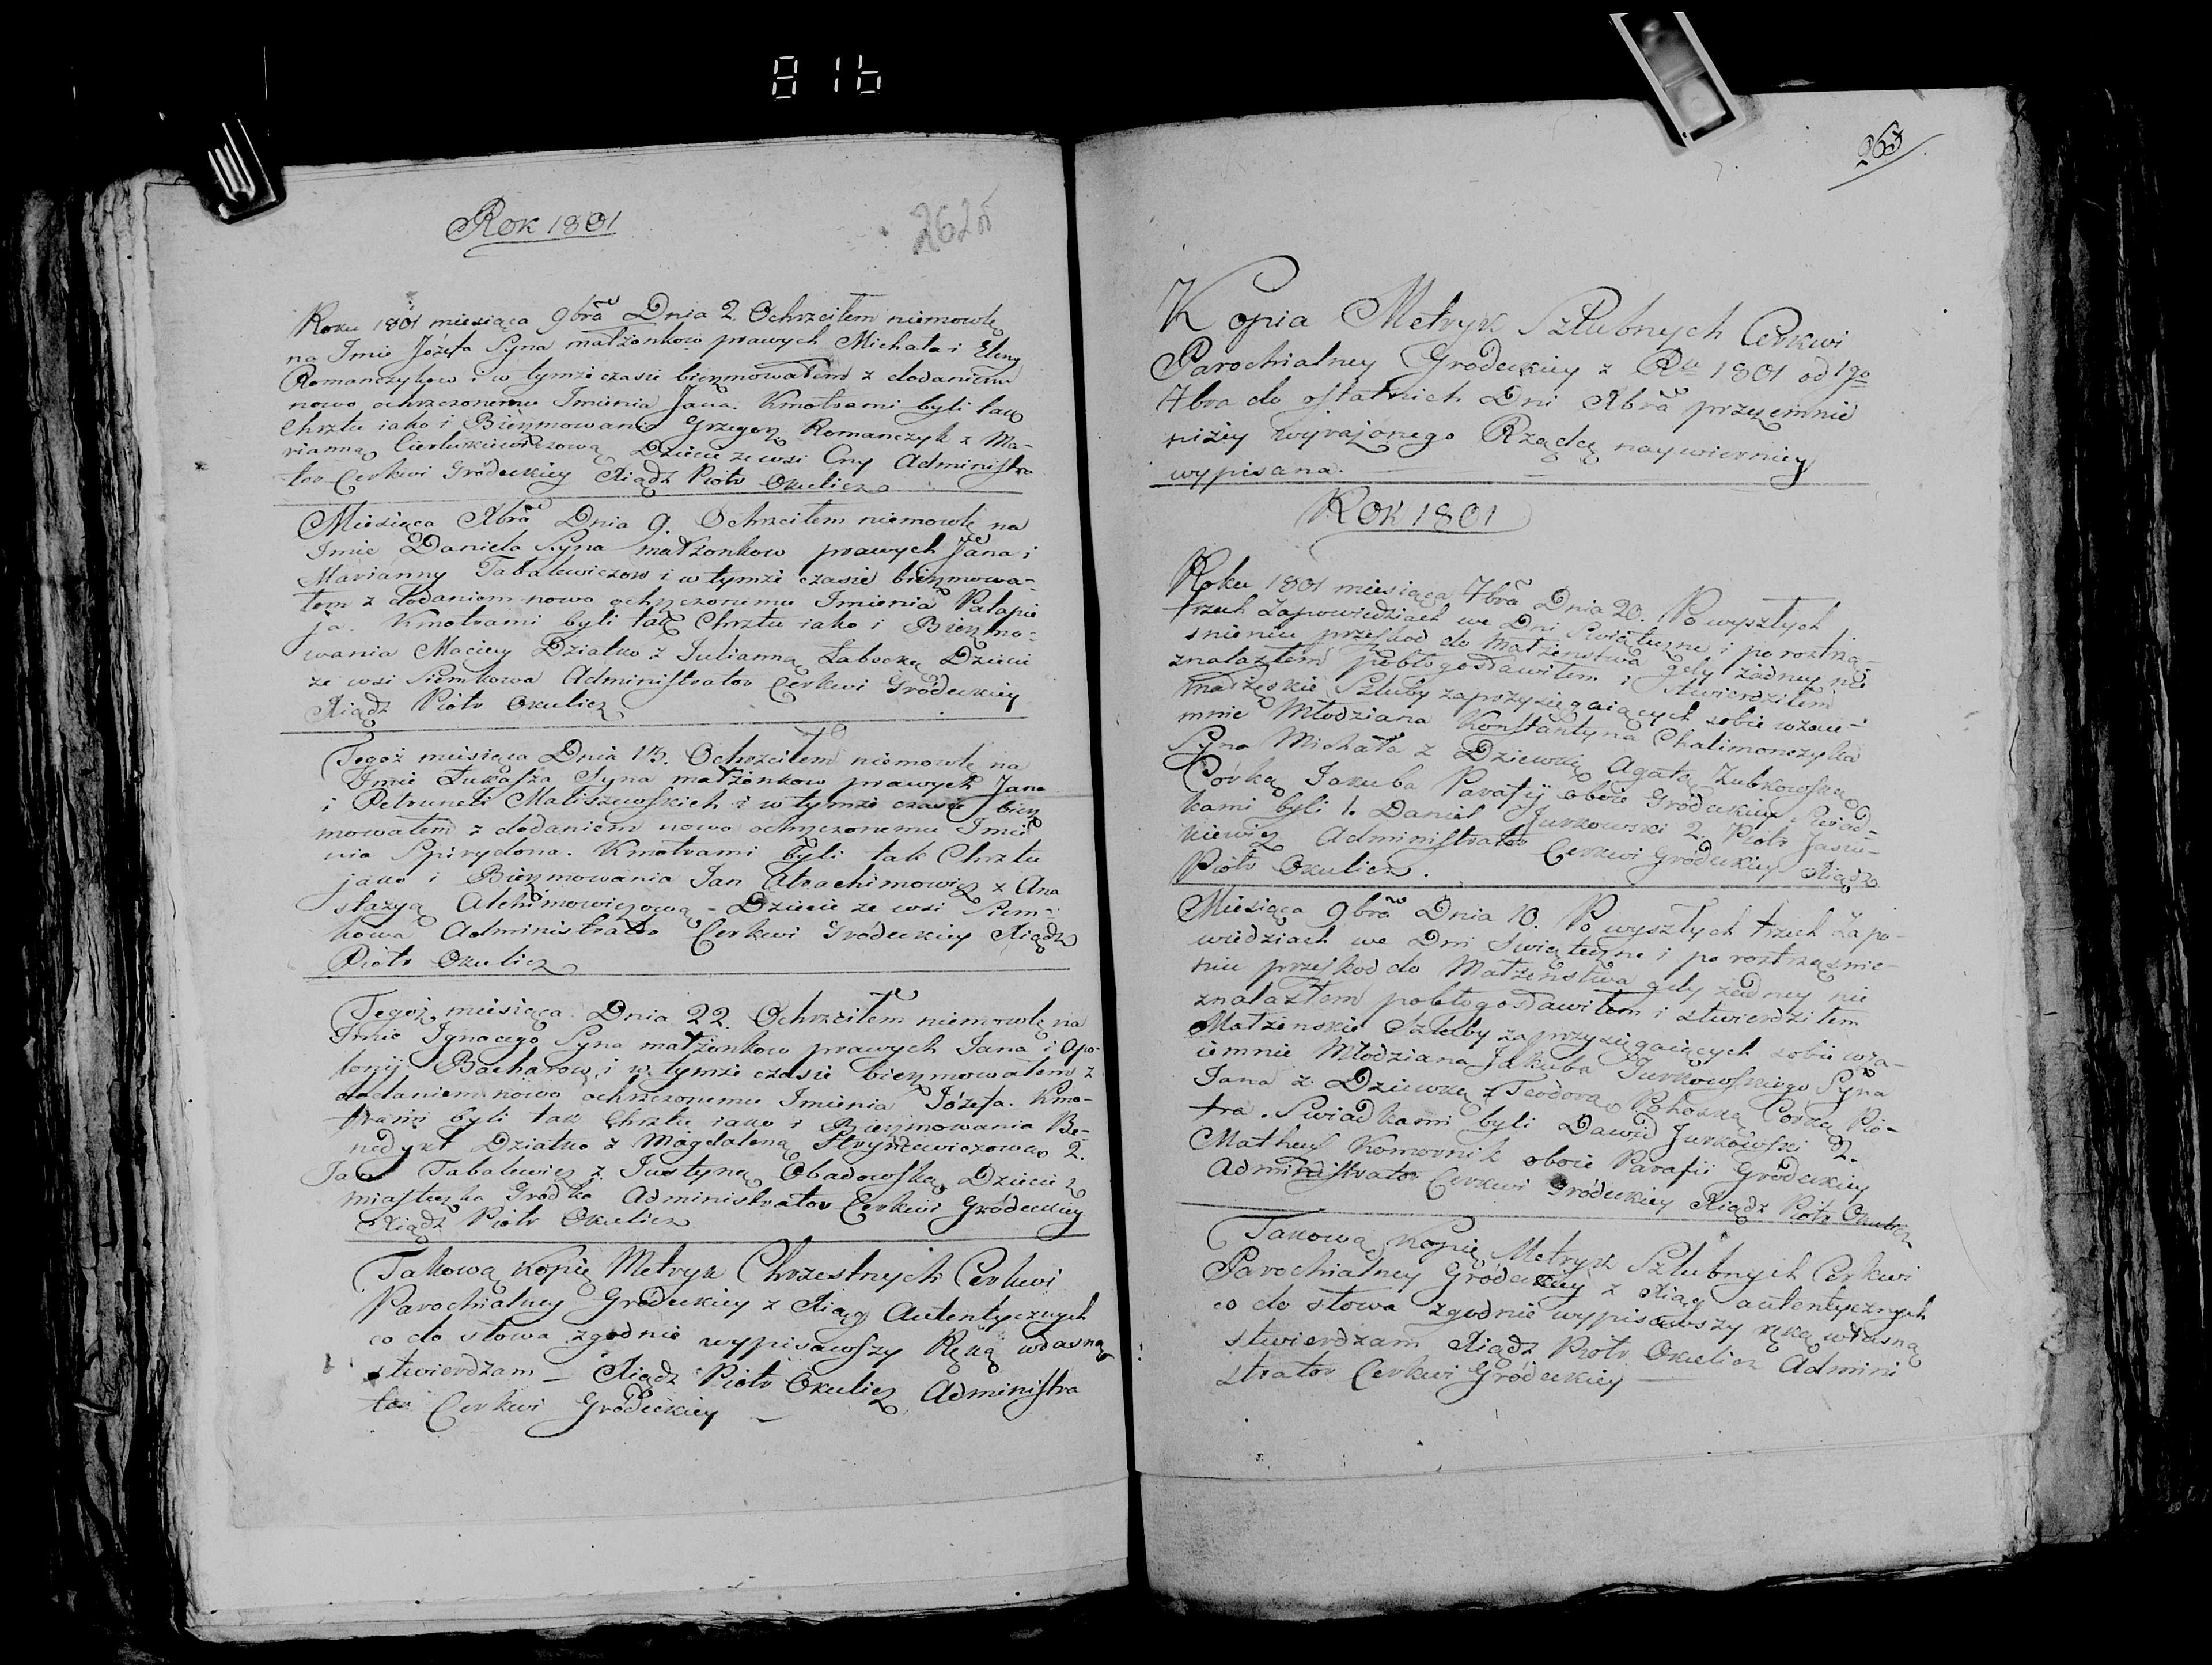 816
Rok 1801
262
Roku 1801 miesiąca 9bra Dnia 2. Ochrzciłem niemowlę
na Imie Józefa Syna małżonkow prawych Michała i Eleny
Romanczykow i w tymże czasie bierzmowałem z dodaniem
nowo ochrzczonemu Imienia Jana. Kmotrami byli tak
Chrztu iako i Bierzmowania Grzegorz Romanczyk z Ma-
rianną Dziecie ze wsi Cny Administra
tor Cerkwi Gródeckiey Xiądz Piotr Okulicz
Miesiąca Xbra Dnia 9. Ochrzciłem niemowlę na
Imie Daniela Syna małżonkow prawych Jana i
Marianny Tabalewiczow i w tymże czasie bierzmowa-
łem z dodaniem nowo ochrzczonemu Imienia Patapie
ja. Kmotrami byli tak Chrztu iako i Bierzmo-
wania Maciey Dziatko z Julianną Labocką Dziecie
ze wsi Siemkowa Administrator Cerkwi Gródeckiey
Xiądz Piotr Okulicz
Tegoż miesiąca Dnia 13. Ochrzciłem niemowlę na
Imie Łukasza Syna małżonkow prawych Jana
i Petruneli Maliszewskich i w tymże czasie bierz
mowałem z dodaniem nowo ochrzczonemu Imie
nia Spirydona. Kmotrami byli tak Chrztu
jako i Bierzmowania Jan Atrachimowicz z Ana
stazyą Dziecie ze wsi Siem-
kowa Administrator Cerkwi Gródeckiey Xiądz
Piotr Okulicz
Tegoż miesiąca Dnia 22. Ochrzciłem niemowlę na
Imie Ignacego Syna małżonkow prawych Jana i Apo-
lonij Bacharow, i w tymże czasie bierzmowałem z
dodaniem nowo ochrzczonemu Imienia Józefa. Kmo-
trami byli tak Chrztu iako i Bierzmowania Be-
nedykt Dziatko z Magdaleną 2.
Jan Tabalewicz z Justyną Obadowską Dziecie z
miasteczka Grodka Administrator Cerkwi Gródeckiey
Xiądz Piotr Okulicz
Takową kopię Metryk Chrzestnych Cerkwi
Parochialney Gródeckiey z Xiąg Autentycznych
co do słowa zgodnie wypisawszy Ręką własną
stwierdzam - Xiądz Piotr Okulicz Administra
tor Cerkwi Gródeckiey -
263
Kopia Metryk Szlubnych Cerkwi
Parochialney Gródeckiey z Ru 1801 od 1go
7bra do ostatnich Dni Xbra przezemnie
niżey wyrażonego Rządcę naywierniey
wypisana.
Rok 1801
Roku 1801 miesiąca 7bra Dnia 20. Po wyszłych
trzech Zapowiedziach we Dni Swiąteczne i po roztrzą-
snieniu przeszkod do Małżenstwa gdy żadney nie
znalazłem pobłogosławiłem i stwierdziłem
małżeskie Szluby zaprzysięgaiących sobie wzaie-
mnie Młodziana Konstantyna Chalimonczyka
Syna Michała z Dziewką Agatą Zubkowską
Córką Jakuba Parafij oboie Gródeckiey Swiad-
kami byli 1. Daniel Jurkowski 2. Piotr Jasiu-
kiewicz Administrator Cerkwi Gródeckiey Xiądz
Piotr Okulicz.
Miesiąca 9bra Dnia 10. Po wyszłych trzech Zapo-
wiedziach we Dni Swiąteczne i po roztrząsnie-
niu przeszkod do Małżenstwa gdy żadney nie
znalazłem pobłogosławiłem i stwierdziłem
Małżenskie Szluby zaprzysięgaiących sobie wza-
iemnie Młodziana Jakuba Jurkowskiego Syna
Jana z Dziewką z Teodorą Pohoską Corką Pio-
tra. Swiadkami byli Dawid Jurkowski 2.
Matheusz Komornik oboie Parafii Gródeckiey
Administrator Cerkwi Gródeckiey Xiądz Piotr Okulicz
Takową kopię Metryk Szlubnych Cerkwi
Parochialney Gródeckiey z Xiąg autentycznych
co do słowa zgodnie wypisawszy ręką własną
stwierdzam Xiądz Piotr Okulicz Admini
strator Cerkwi Gródeckiey